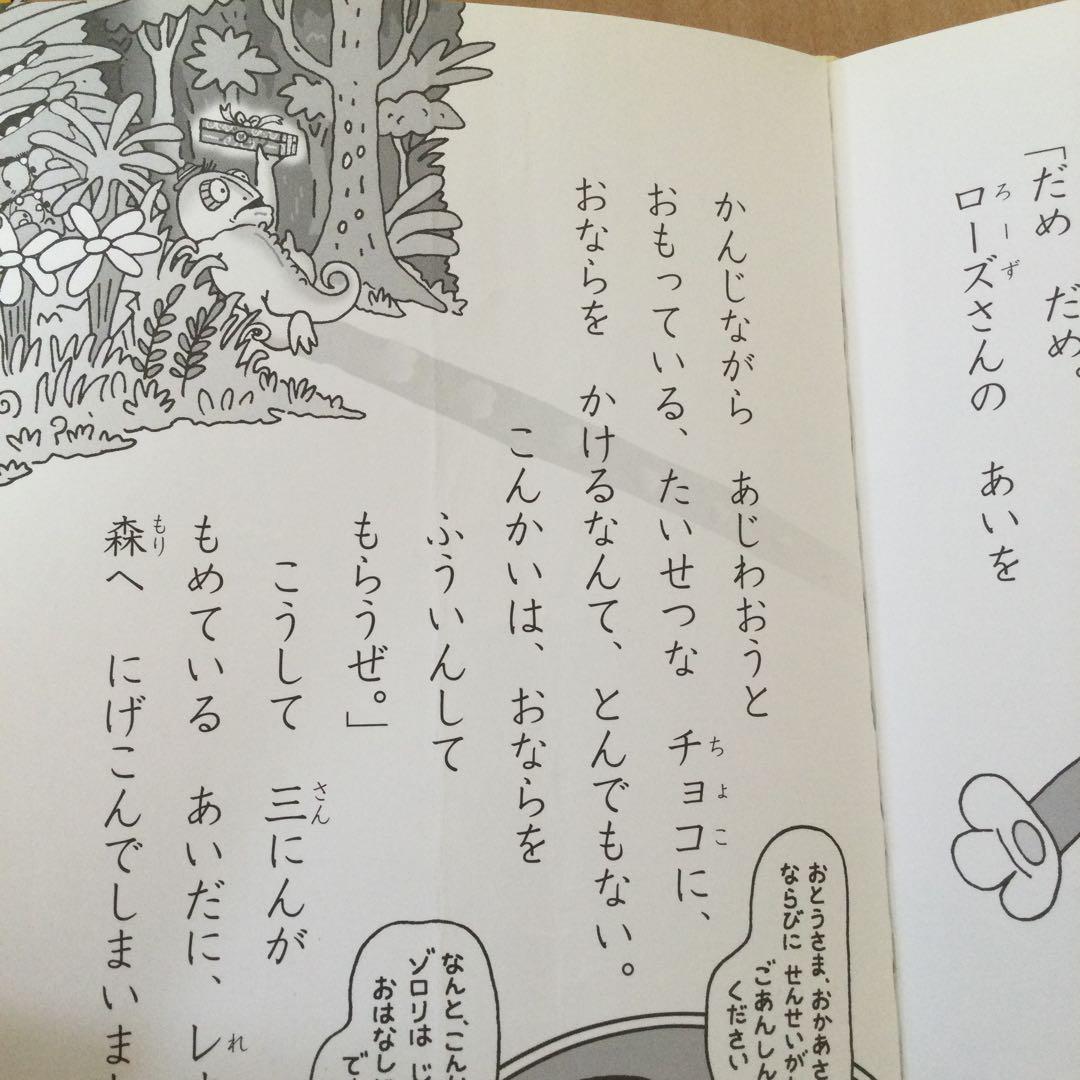 「だめ だめ。
ローズさんの あいを
ろーず
かんじながら あじわおうと
おもっている、たいせつな チョコに、
ちょこ
おならを かけるなんて、とんでもない。
こんかいは、おならを
ふういんして
もらうぜ。」
こうして 三にんが
さん
もめている あいだに、レ
れ
森へ にげこんでしまいま
もり
おとうさま、おかあさ
ならびに せんせいが
ごあんしん
ください
なんと、こん
ゾロリは じ
おはなし
で